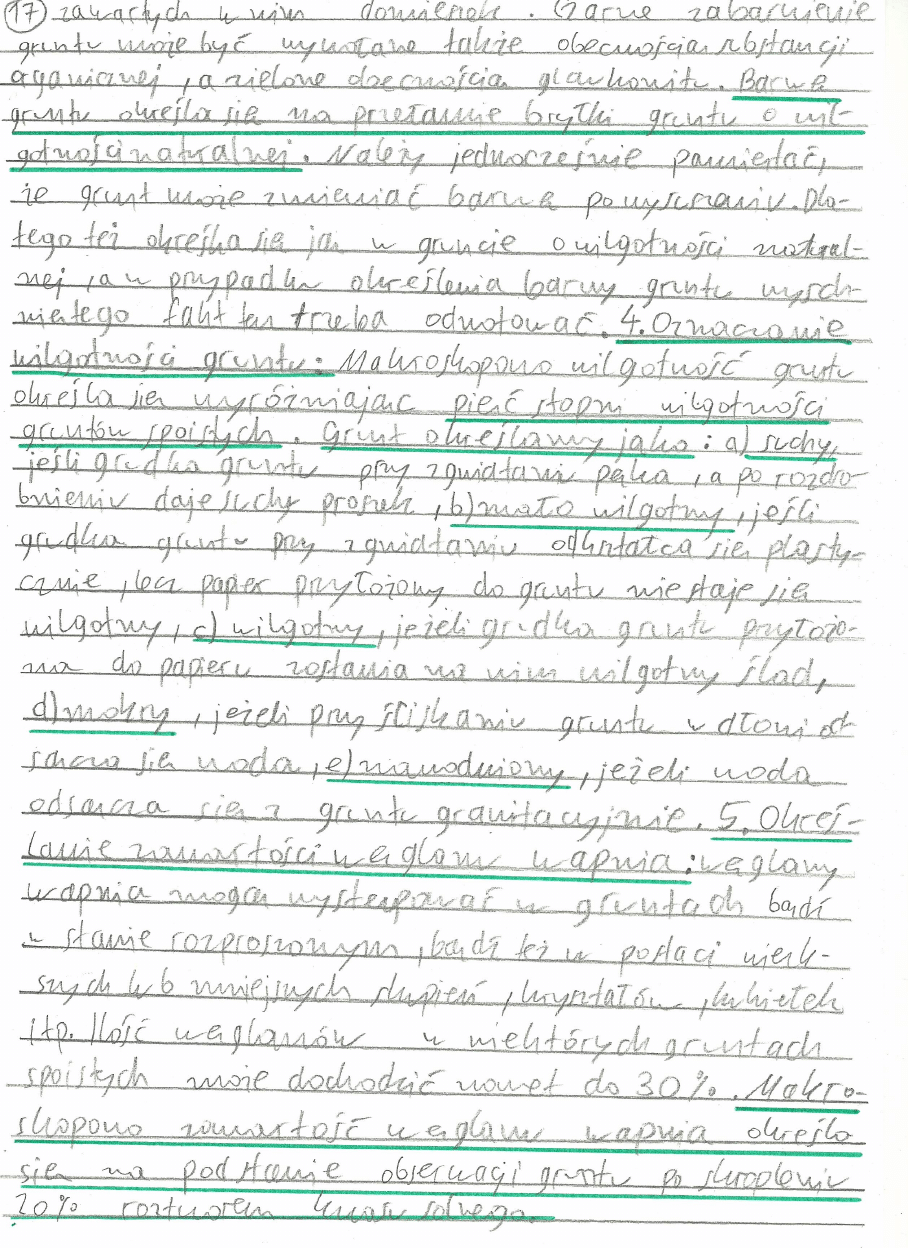 (17) zawartych w nim domieszek. Czarne zabarwienie
gruntu może być wywołane także obecnością substancji
organicznej, a zielone obecnością glaukonitu. Barwę
gruntu określa się na przełamie bryłki gruntu o wil-
gotności naturalnej. Należy jednocześnie pamiętać,
że grunt może zmieniać barwę po wyschnięciu. Dla-
tego też określa się ją w gruncie o wilgotności natural-
nej, a w przypadku określenia barwy gruntu wysch-
niętego fakt ten trzeba odnotować. 4. Oznaczanie
wilgotności gruntu: Makroskopowo wilgotność gruntu
określa się wyróżniając pięć stopni wilgotności
gruntów spoistych. Grunt określamy jako: a) suchy,
jeśli grudka gruntu przy zgniataniu pęka, a po rozdro-
bnieniu daje suchy proszek, b) mało wilgotny, jeśli
grudka gruntu przy zgniataniu odkształca się plasty-
cznie, lecz papier przyłożony do gruntu nie staje się
wilgotny, c) wilgotny, jeżeli grudka gruntu przyłożo-
na do papieru zostawia na nim wilgotny ślad,
d) mokry, jeżeli przy ściskaniu gruntu w dłoni od-
sącza się woda, e) nawodniony, jeżeli woda
odsącza się z gruntu grawitacyjnie. 5. Okreś-
lanie zawartości węglanu wapnia: węglany
wapnia mogą występować w gruntach bądź
w stanie rozproszonym, bądź też w postaci więk-
szych lub mniejszych skupień, kryształów, kukiełek
itp. Ilość węglanów w niektórych gruntach
spoistych może dochodzić nawet do 30%. Makro-
skopowo zawartość węglanu wapnia określa
się na podstawie obserwacji gruntu po skropleniu
20% roztworem kwasu solnego.